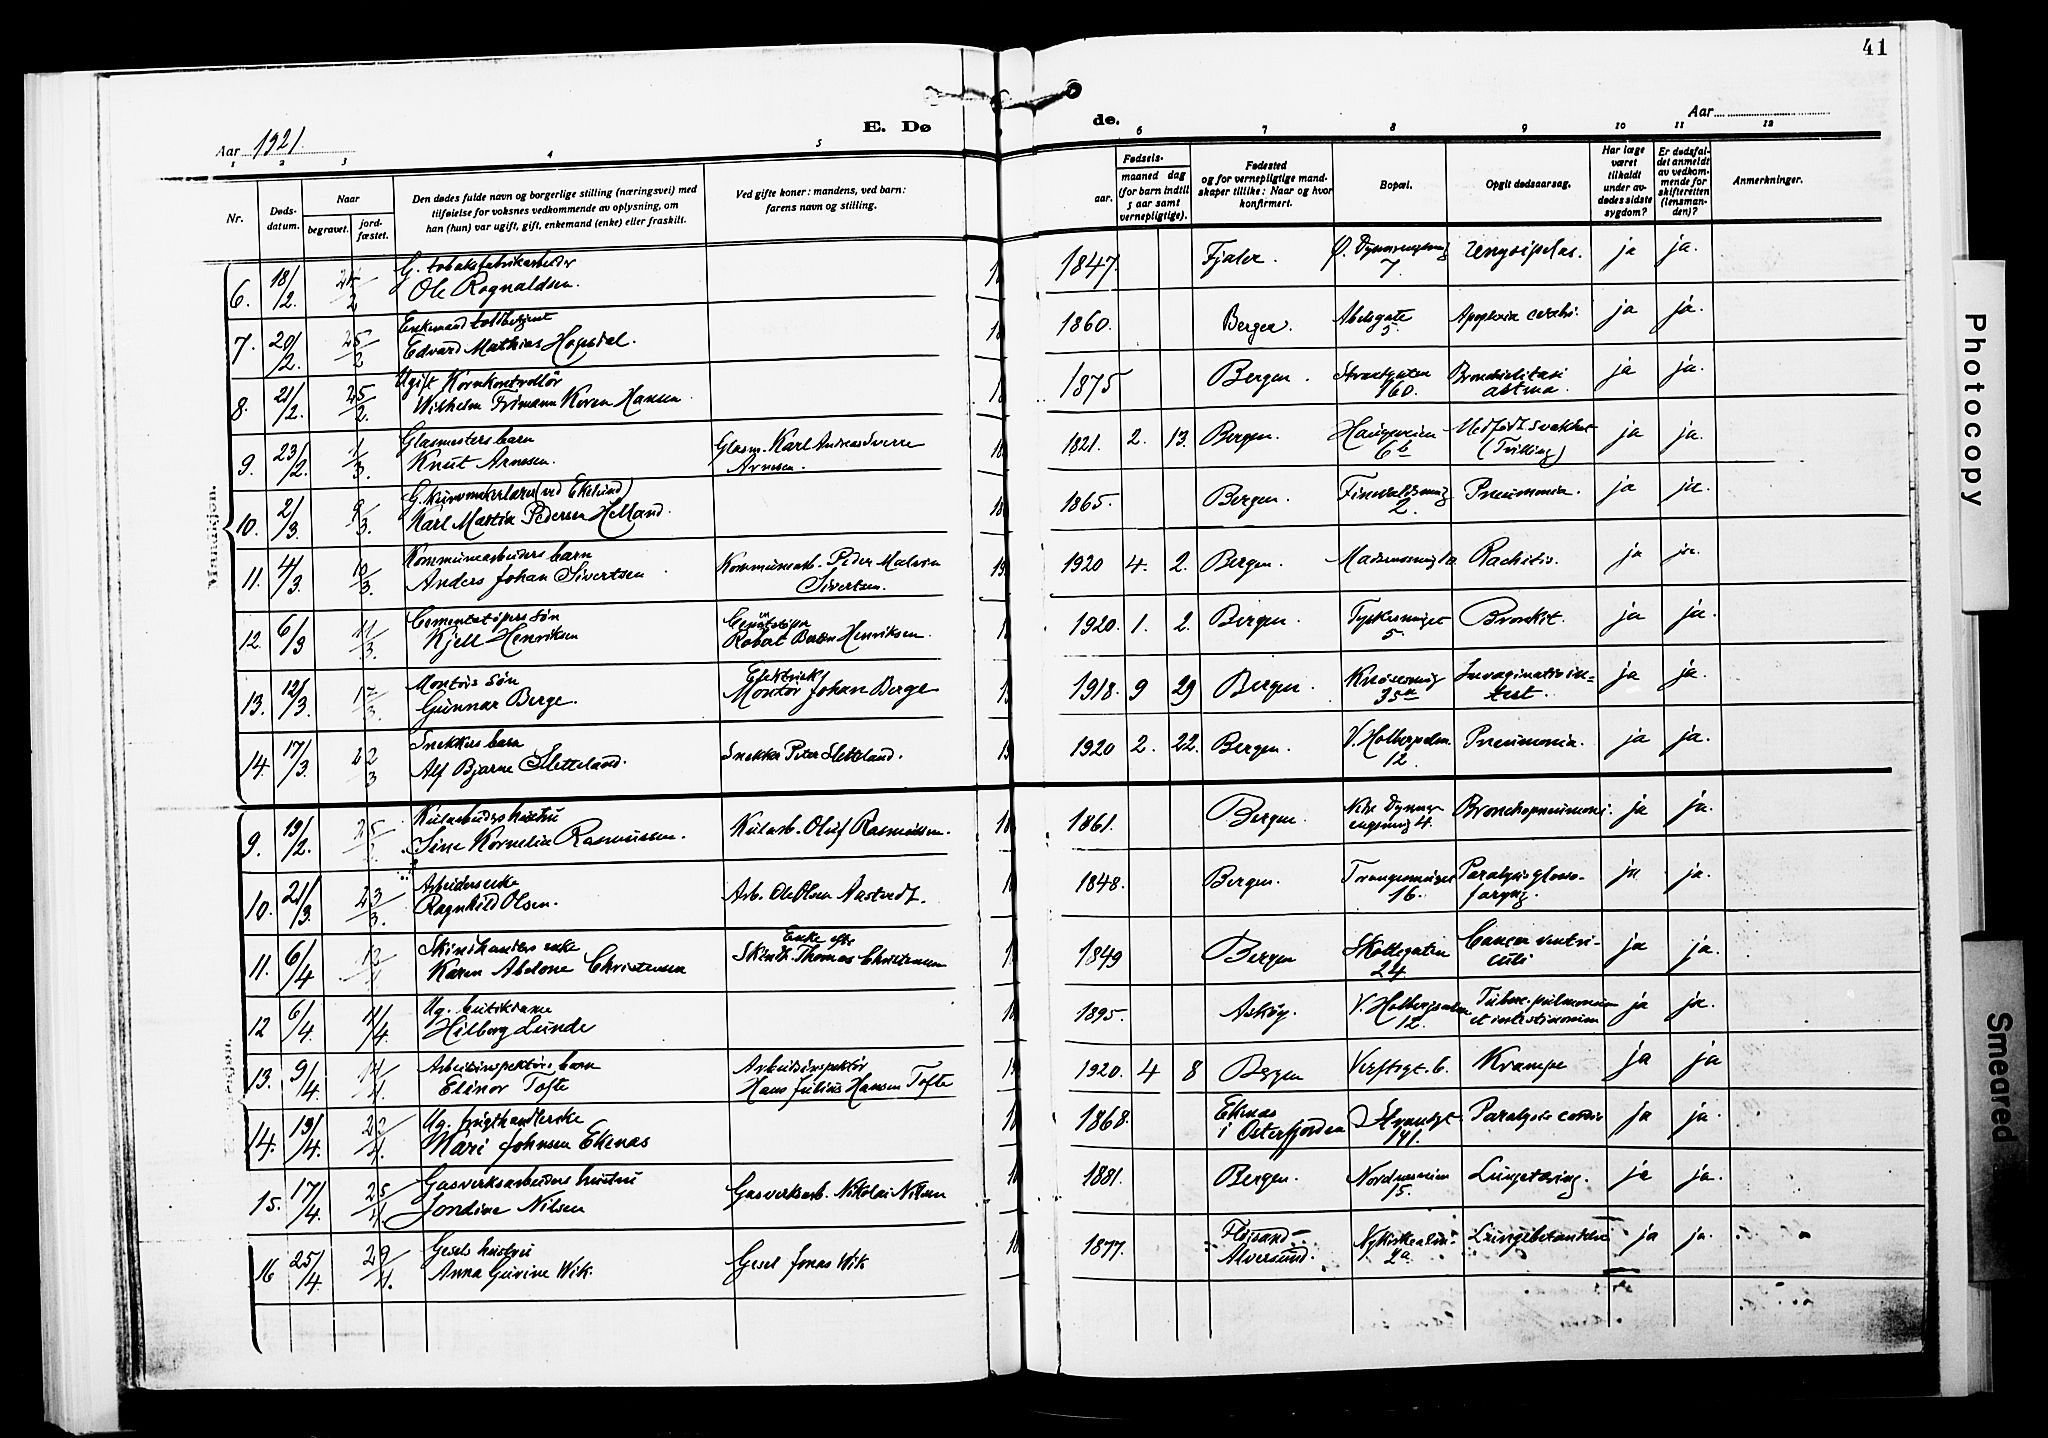 41
Aar 1921.
E. Dø
de.
Aar
1 2 3 4 5
6 7 8 9 10 11 12
Nr.
Døds-
datum.
Naar
begravet.
jord-
fæstet.
Den dødes fulde navn og borgerlige stilling (næringsvei) med
tilføielse for voksnes vedkommende av oplysning, om
han (hun) var ugift, gift, enkemand (enke) eller fraskilt.
Ved gifte koner: mandens, ved barn:
farens navn og stilling.
Fødsels-
aar.
maaned dag
(for barn indtil
5 aar samt
vernepligtige).
Fødested
og for vernepligtige mand-
skaper tillike: Naar og hvor
konfirmert.
Bopæl.
Opgit dødsaarsag.
Har læge
været
tilkaldt
under av-
dødes sidste
sygdom?
Er dødsfal-
det anmeldt
av vedkom-
mende for
skifteretten
(lensman-
den)?
Anmerkninger.
Mandkjøn.
6. 18/2. G. tobaksfabrikarbeider
Ole Rognaldsen. 1847. Fjaler. 7. ja ja.
7. 20/2. 25/2 Enkemand toldbetjent
Edvard Mathias Hopsdal. 1860. Bergen. Abelsgate 5. ja ja.
8. 21/2. 25/2. Ugift Kornkontrollør
Wilhelm Frimann Koren Hansen. 1875 Bergen. Strandgaten 160. astma. ja ja.
9. 23/2. 1/3. Glasmesters barn
Knut Arnesen. Glasm. Karl Andreas Sverre
Arnesen. 1821. 2. 13. Bergen. Haugeveien 6b Medfødt svakhet
(Tvilling) ja ja.
10. 2/3 9/3. G. (ved Ekelund)
Karl Martin Pedersen Helland. 1865. Bergen. 2. Pneumonia. ja ja.
11. 4/3. 10/3. Kommunearbeiders barn
Anders Johan Sivertsen Kommunearb. Peder
Sivertsen. 1920 4. 2. Bergen. Rachitis. ja ja.
12. 6/3 11/3. Cementstøpers søn
Kjell Henriksen Robert Henriksen. 1920. 1. 2. Bergen. 5. Bronkit. ja ja.
13. 12/3. 17/3. Montørs søn
Gunnar Berge. Elektrisk
Montør Johan Berge 1918. 9 29 Bergen. 35a ja ja.
14. 17/3. 22/3 Snekkers barn
Alf Bjarne Sletteland. Snekker Peter Sletteland. 1920 2. 22. Bergen. V. Holbergsalm. 12. Pneumonia. ja ja.
9. 19/2. Kularbeiders hustru
Sine Kornelia Rasmussen. Kularb. Oluf Rasmussen. 1861. Bergen. 4. Bronchopneumoni. ja ja.
10. 21/3. 23/3. Arbeiders enke
Ragnhild Olsen. Arb. Ole Olsen 1848. Bergen. 16. ja ja.
11. 6/4 12/4 Skindhandlers enke
Karen Abelone Christensen Enke efter
Skindh. Thomas Christensen 1849 Bergen Skottegaten
24 Cancer ventri-
culi ja ja.
12 6/4. 11/4. Ug. butikdame
Hilborg Lunde 1895. Askøy. V. Holbergsalm
12. Tuberc. pulmonum
et intestinorum ja ja.
13. 9/4. 14/4. Arbeidsinspektørs barn
Elinor Tofte Arbeidsinspektør
Hans Julius Hansen Tofte 1920. 4 8 Bergen Verftsgt. 6. Krampe ja ja
14. 19/4. 22/4. Ug. frugthandlerske
Mari Johnsen Ekenas 1868. Ekenas
i Osterfjorden Strandgt.
141. Paralysis cordis ja ja.
15. 17/4. 25/4. Gasverksarbeiders hustru
Jordine Nilsen Gasverksarb. Nikolai Nilsen 1881. Bergen. Nordnesveien
15. Lungetæring. ja ja.
16 25/4. 29/4. Gesels hustru
Anna Gurine Wik. Gesel Jonas Wik 1877. Fløisand
Alversund. Nykirkealm.
2a. Lungebetændelse ja ja.
Photocopy
Smeared